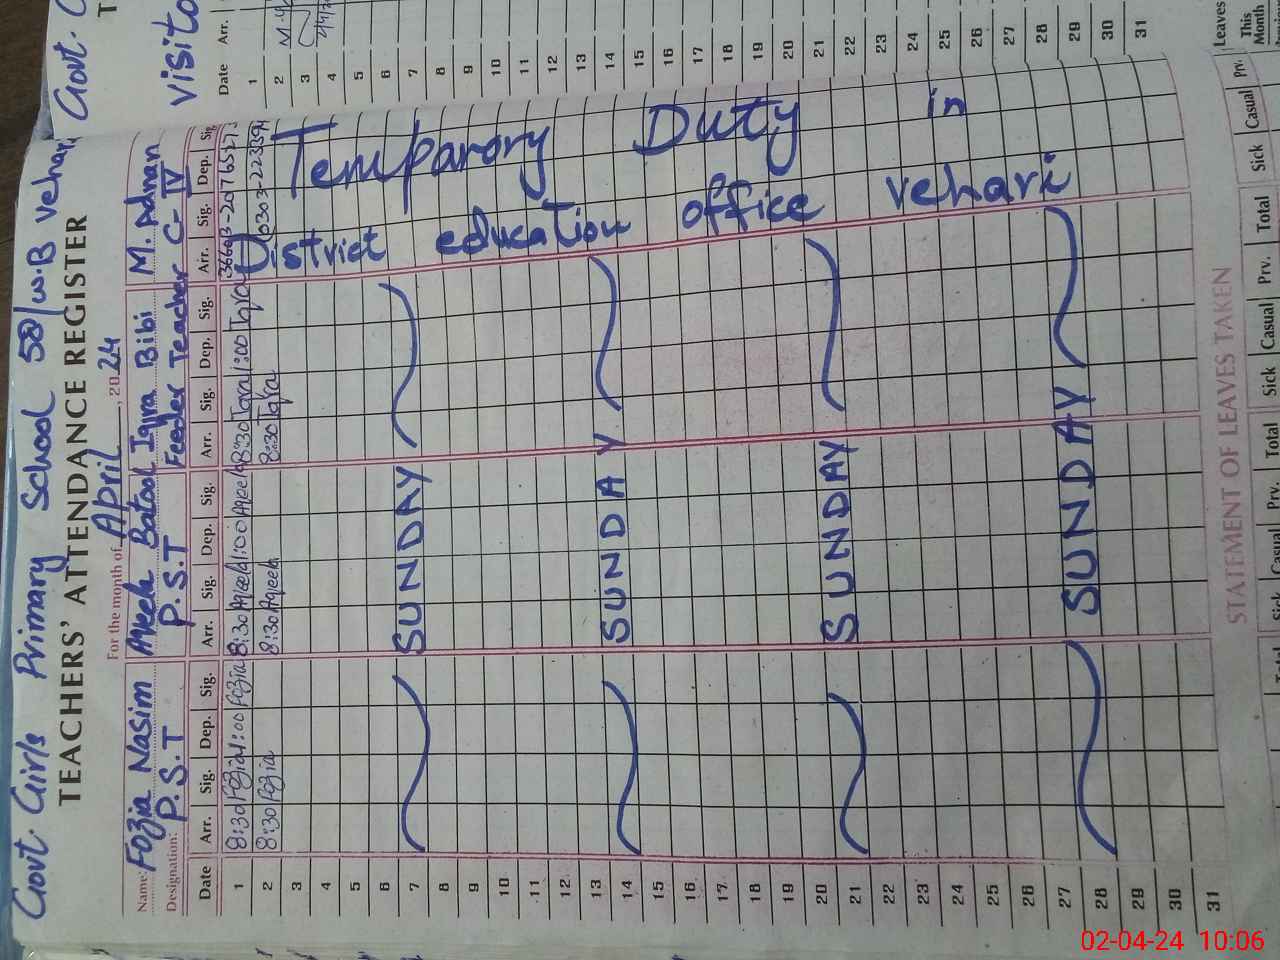 Govt. Girls Primary School 58/W.B Vehari
TEACHERS' ATTENDANCE REGISTER
For the month of April, 2024
Name: Fozia Nasim Aqeela Batool Iqra Bibi M. Adnan
Designation: P.S.T P.S.T Feeder Teacher C-IV
Date Arr. Sig. Dep. Sig. Arr. Sig. Dep. Sig. Arr. Sig. Dep. Sig. Arr. Sig. Dep. Sig.
1 8:30 Fozia 1:00 Fozia 8:30 Aqeela 1:00 Aqeela 8:30 Iqra 1:00 Iqra
2 8:30 Fozia 8:30 Aqeela 8:30 Iqra
3
4
5
6
7 SUNDAY
8
9
10
11
12
13
14 SUNDAY
15
16
17
18
19
20
21 SUNDAY
22
23
24
25
26
27
28 SUNDAY
29
30
31
Temparory Duty in
District education office vehari
STATEMENT OF LEAVES TAKEN
Sick Casual Prv. Total Sick Casual Prv. Total Sick Casual Prv.
Govt.
Visito
Date Arr.
1
2
3
4
5
6
7
8
9
10
11
12
13
14
15
16
17
18
19
20
21
22
23
24
25
26
27
28
29
30
31
Leaves
This Month
02-04-24 10:06